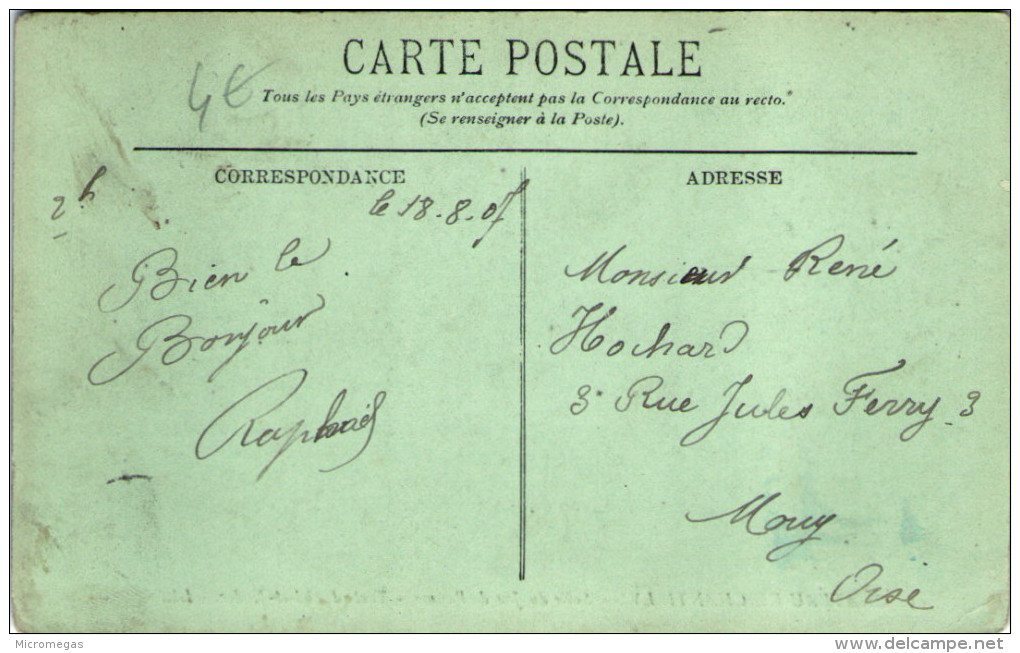 CARTE POSTALE
4€
Tous les Pays étrangers n'acceptent pas la Correspondance au recto.
(Se renseigner à la Poste).
CORRESPONDANCE
2h
le 18-8-07
Bien le
Bonjour
Raphaël
ADRESSE
Monsieur René
Hochard
3 Rue Jules Ferry 3
Mouy
Oise
Micromegas
www.delcampe.net